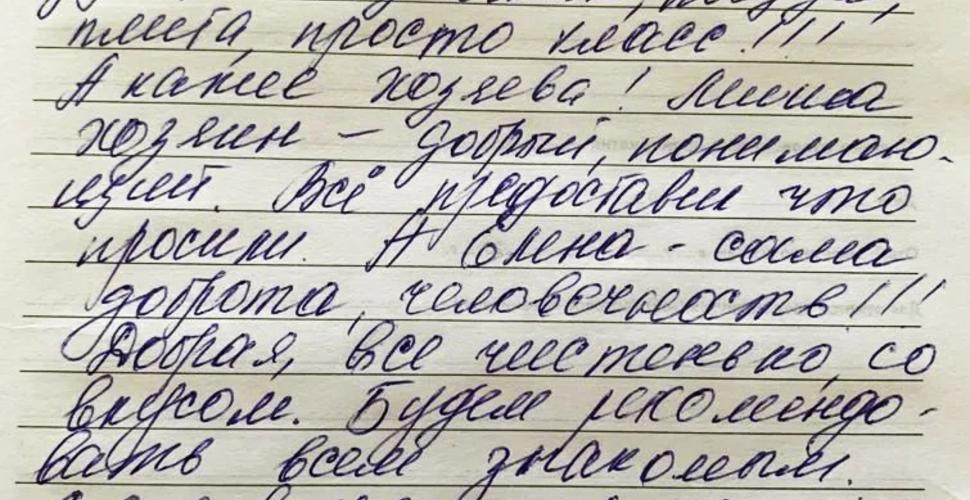 плита, просто класс!!!
А какие хозяева! Миша
хозяин - добрый, понимаю-
щий. Всё предоставил что
просили. А Елена - сама
доброта, человечность!!!
Добрая, все чистенько, со
вкусом. Будем рекомендо-
вать всем знакомым.